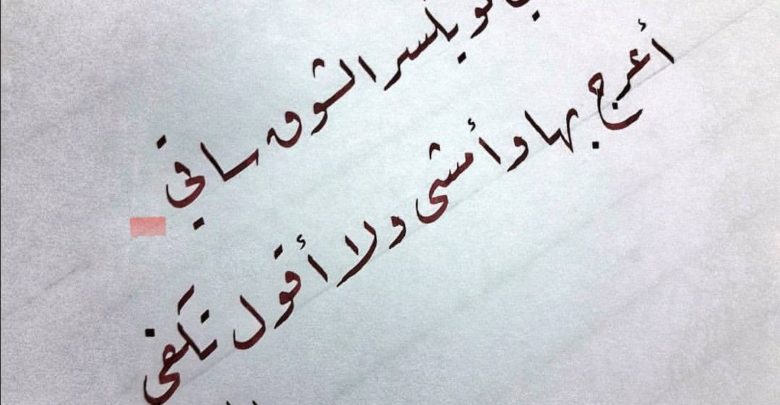 لو يكسر الشوق ساقي
أعرج بها وأمشي ولا أقول تكفى